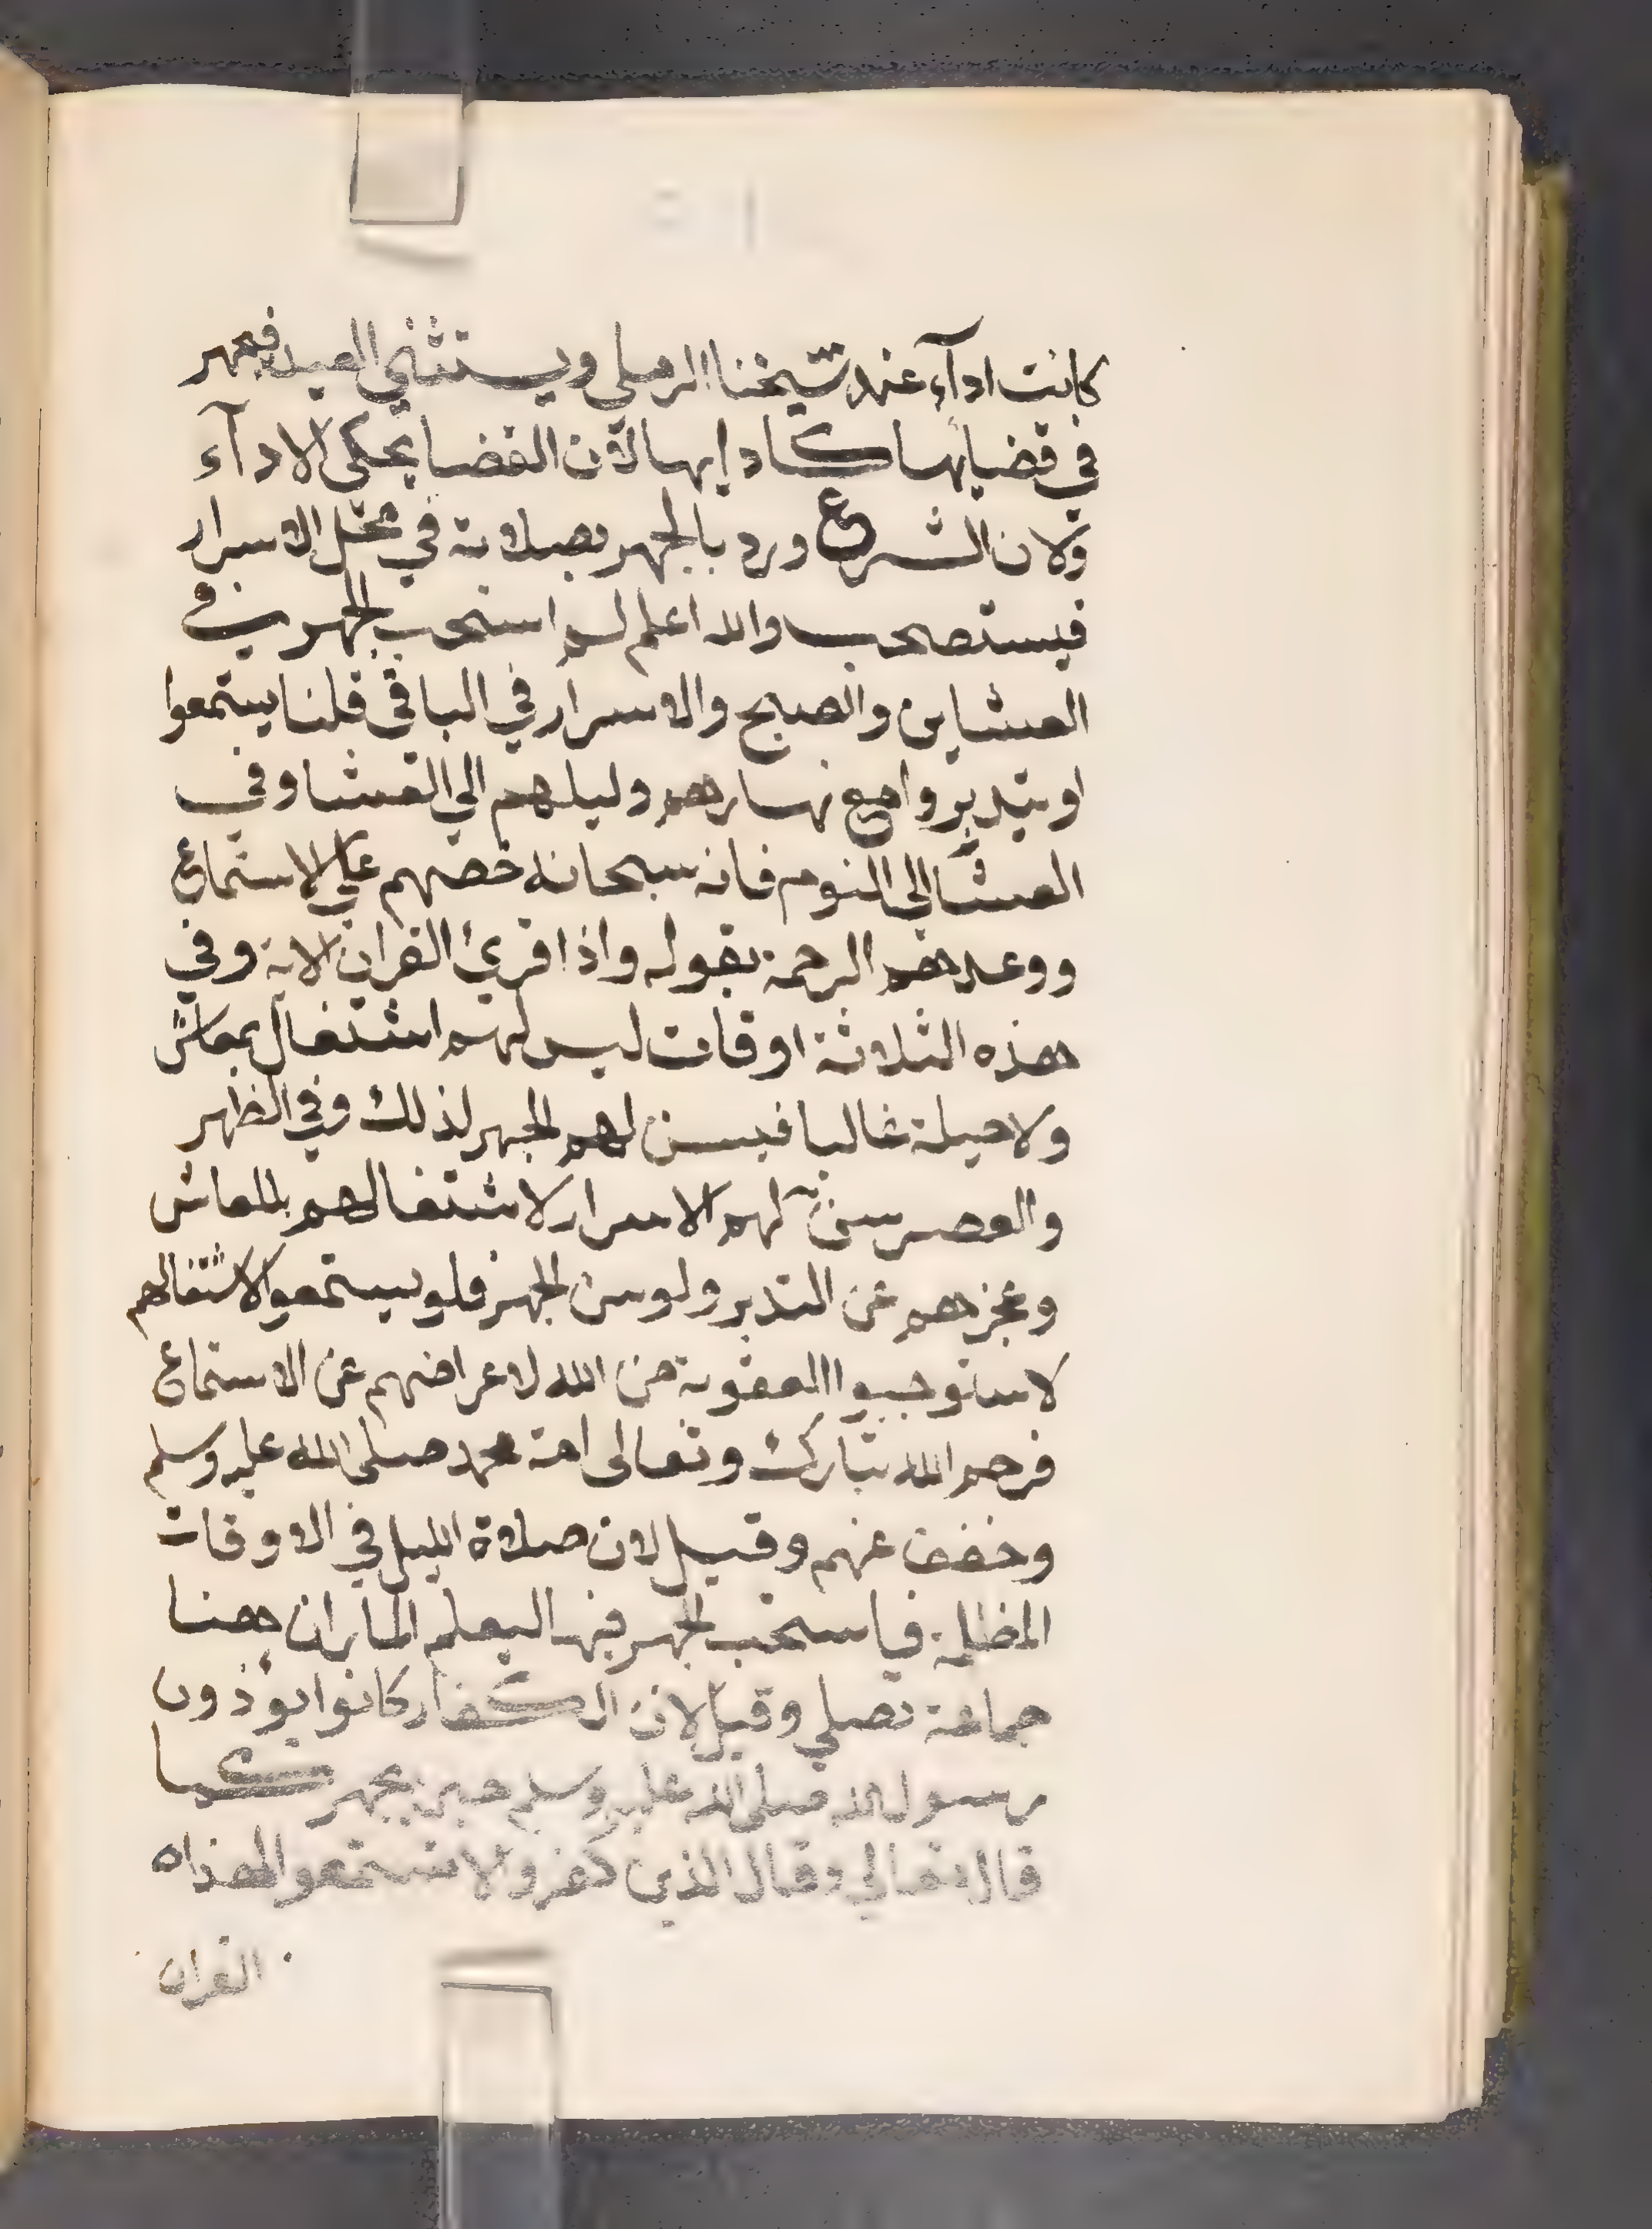 كانت ادآء عند شيخنا الرملي ويستثني العيد فيجهر
في قضايها كادايها لان القضا يحكى الادآء
ولان الشرع ورد بالجهر بصلاته في محل الاسرار
فيستصحب والله اعلم لم استحب الجهر في
العشاين والصبح والاسرار في الباقي قلنا يستمعوا
او يتدبروا مع نهارهم وليلهم الي العشا وفي
العشا الي النوم فانه سبحانه خصهم علي الاستماع
ووعدهم الرحمة بقوله واذا قرئ القران الاية وفي
هذه الثلاثة اوقات ليس لهم اشتغال بمعاش
ولا حيلة غالبا فيسن لهم الجهر لذلك وفي الظهر
والعصر سن لهم الاسرار لاشتغالهم بالمعاش
وعجزهم عن التدبر ولو سن الجهر فلو يستمعوا لاشتغالهم
لاستوجبوا العقوبة من الله لاعراضهم عن الاستماع
فرحم الله تبارك وتعالى امة محمد صلى الله عليه وسلم
وخفف عنهم وقيل لان صلاة الليل في الاوقات
المظلمة فياستحب الجهر فيها ليعلم المار ان هنا
جماعة تصلي وقيل لان الكفار كانوا يؤذون
رسول الله صلى الله عليه وسلم حين يجهر كما
قال تعالي وقال الذين كفرو لا تستمعوا لهذا
القران